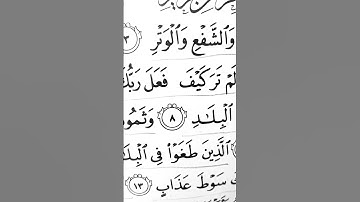 وَٱلشَّفْعِ وَٱلْوَتْرِ ٣
تَرَ كَيْفَ فَعَلَ رَبُّكَ
ٱلْبِلَٰدِ ٨ وَثَمُو
ٱلَّذِينَ طَغَوْا۟ فِى ٱلْبِلَٰ
سَوْطَ عَذَابٍ ١٣